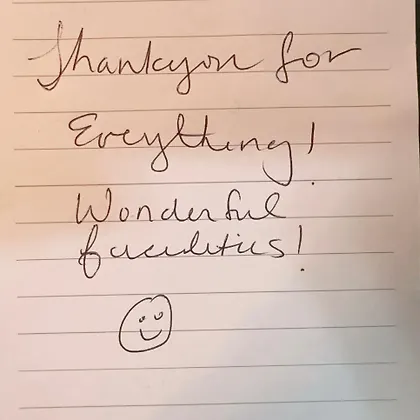 Thankyou for
Everything!
Wonderful
facilities!